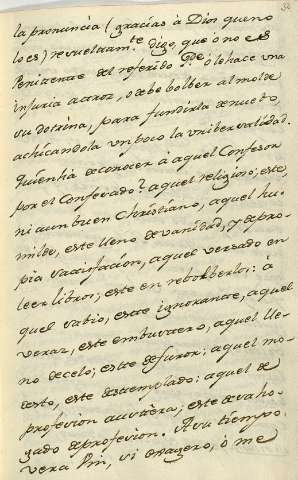 la pronuncia (gracias à Dios que no
lo es) resueltam.te digo, que ô no es
Penitente del referido P.e ô le hace una
injuria atroz, o debe bolber al molde
su dotrina, para fundirla de nuebo,
achicandola un poco la unibersalidad.
Quien hà de conocer à aquel Confesor
por el Confesado? aquel religioso, este
ni aun buen Christiano, aquel hu-
milde, este lleno de vanidad, y de pro-
pia satisfacion, aquel versado en
leer libros; este en rebolberlos: à
quel sabio, este ignorante, aquel
veraz, este embustero, aquel lle-
no de celo; este de furor: aquel mo-
desto, este destemplado; aquel de
profesion austera; este de
de profesion. A su tiempo
vera Pm, si exagero, ò me